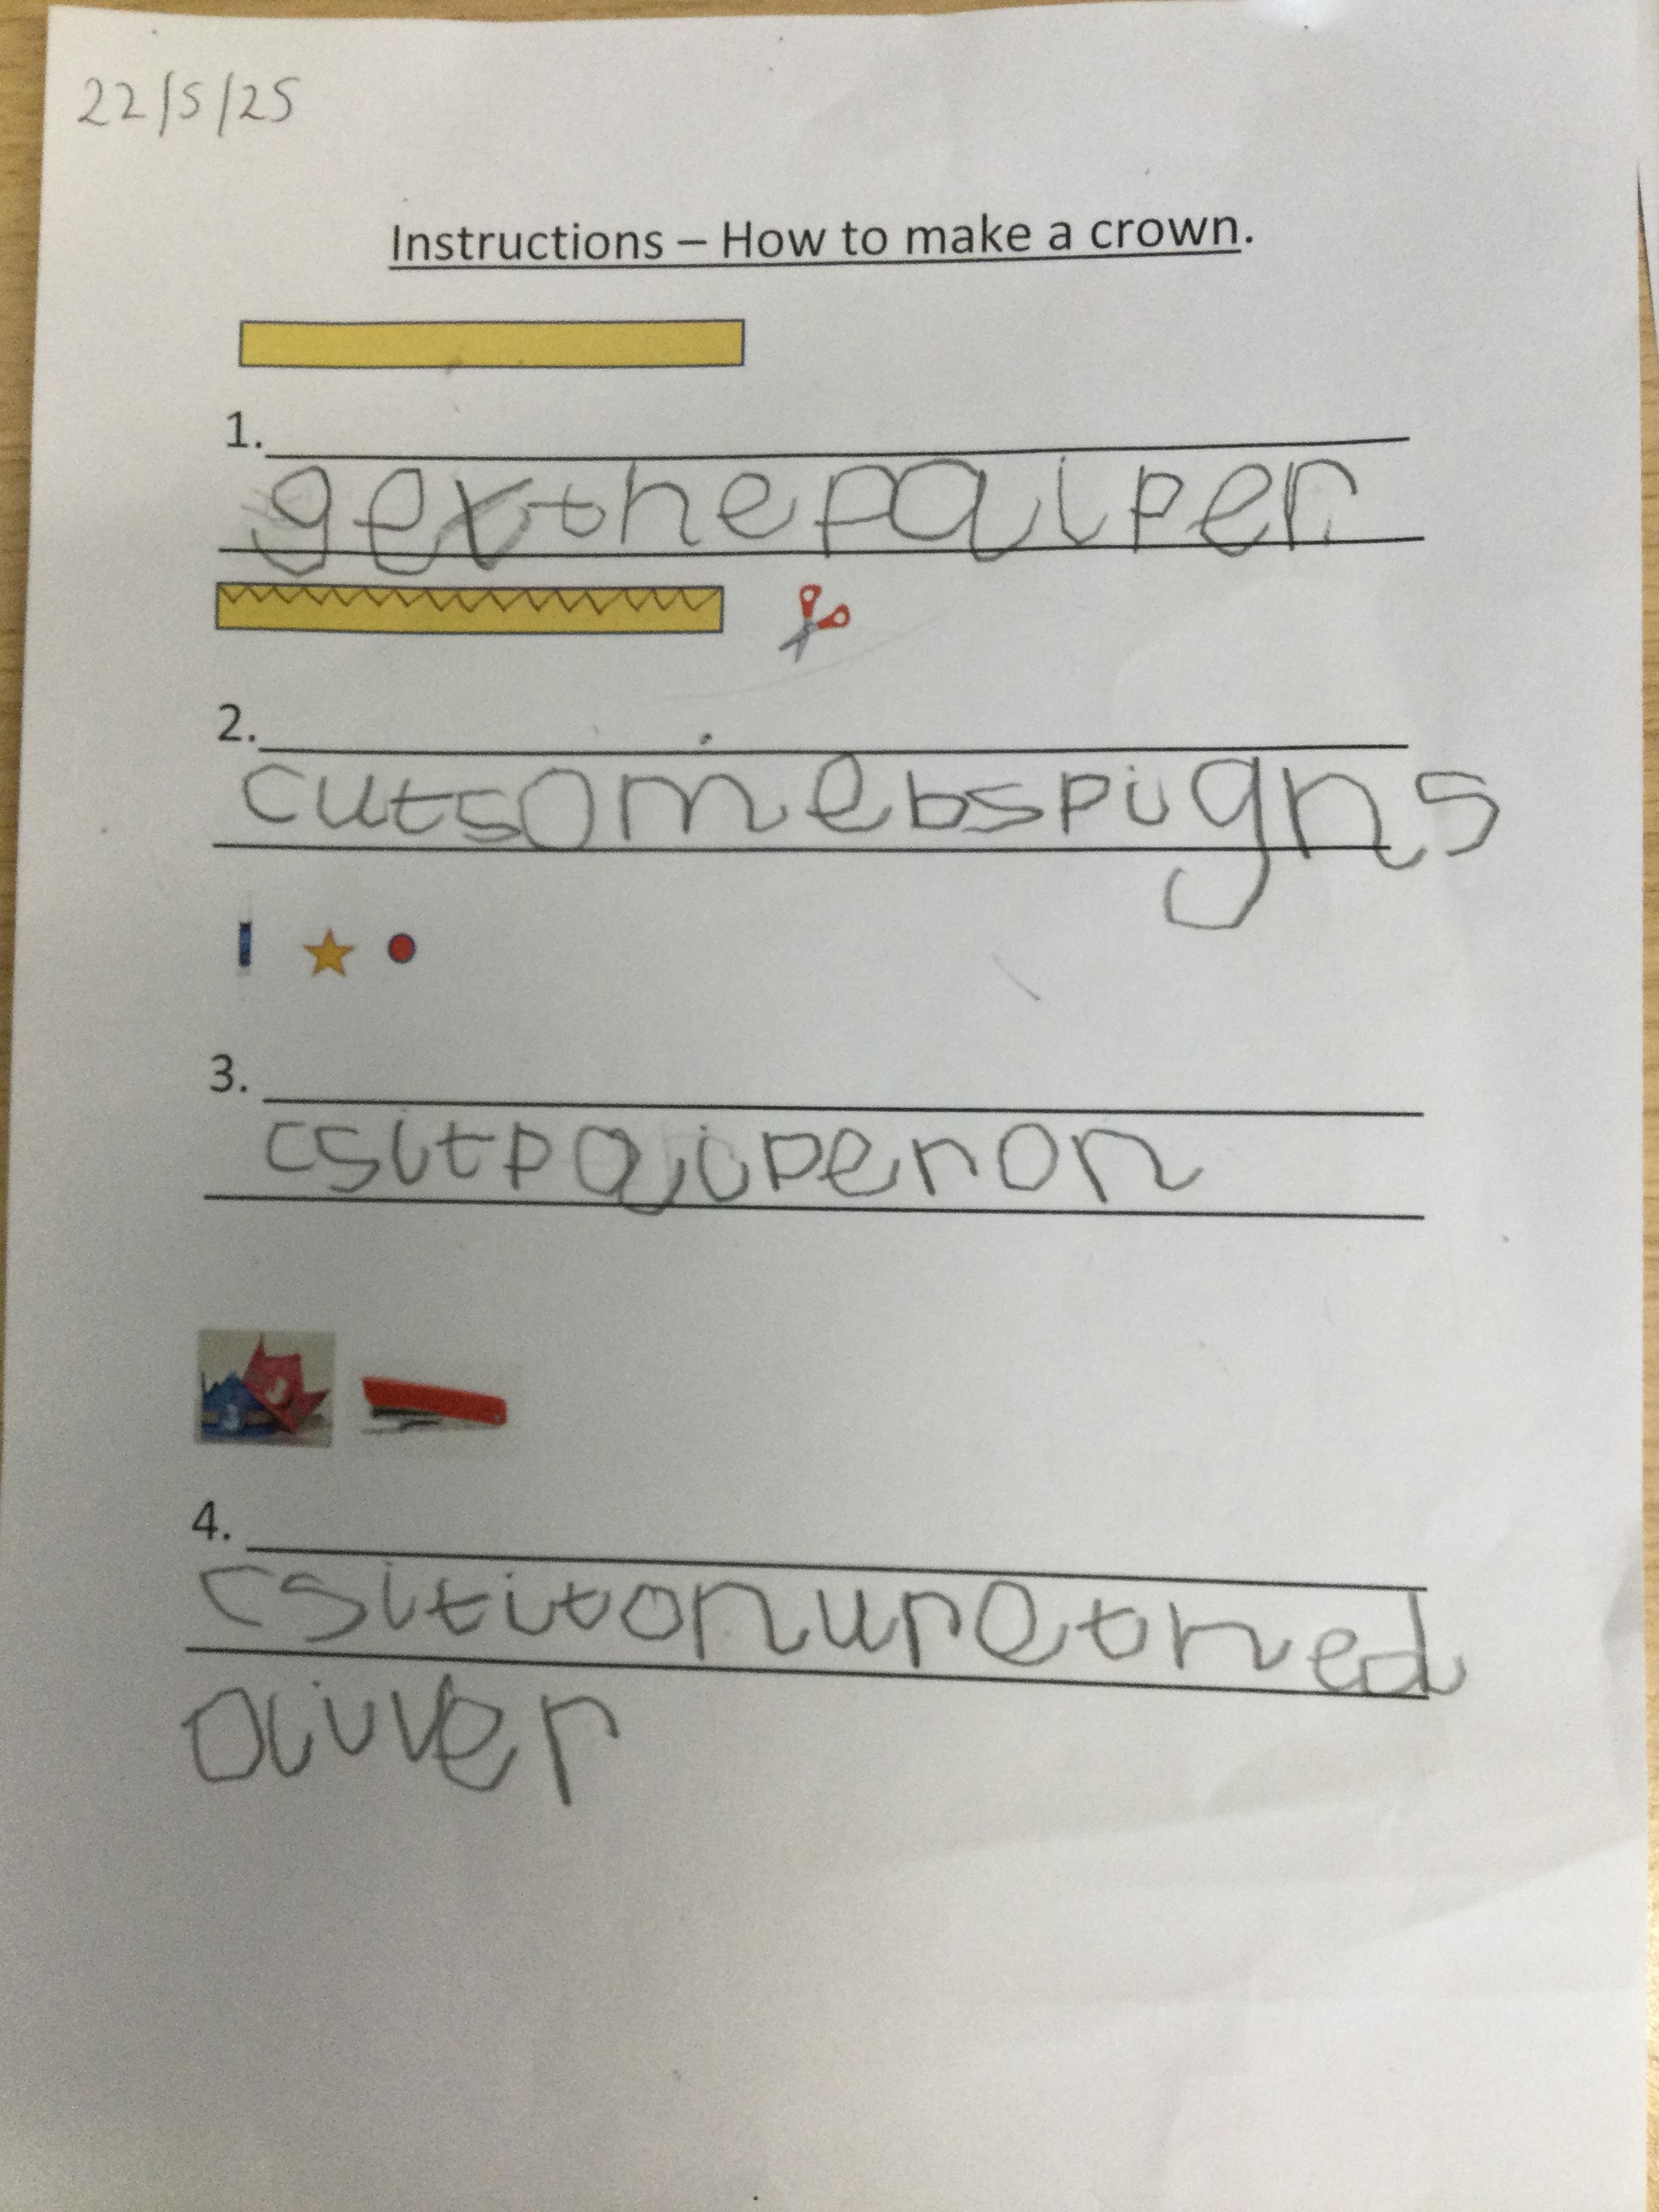 22/5/25
Instructions – How to make a crown.
1.
gexthepaiper
2.
cutsomebspigns
3.
csitpaiperon
4.
csititonurethed
oliver